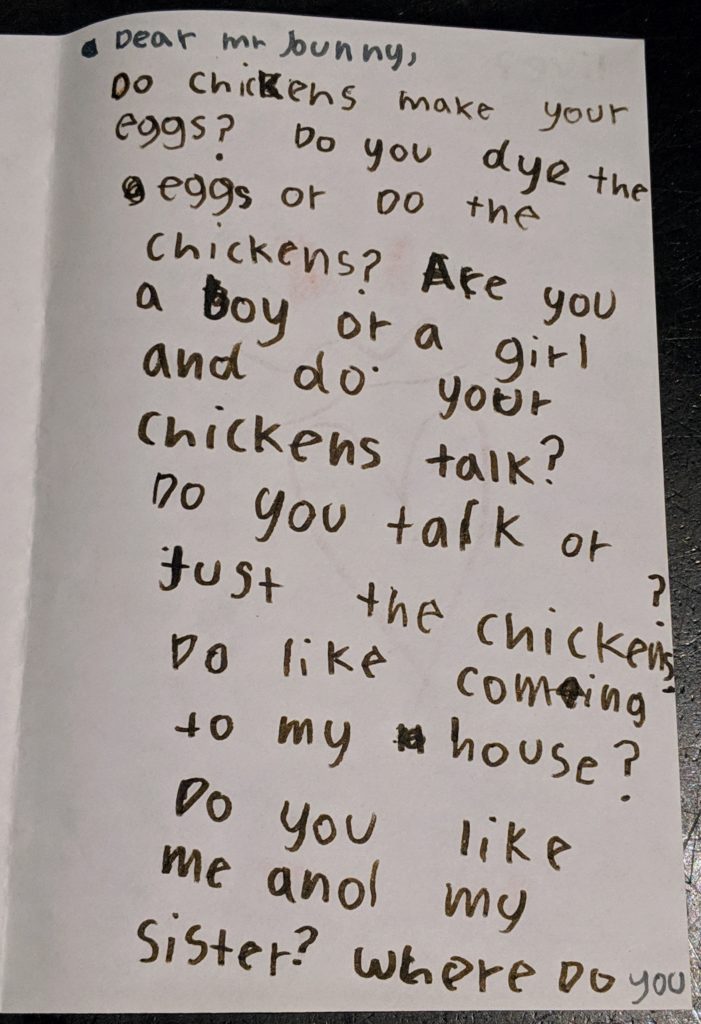 Dear mr bunny,
Do chickens make your
eggs? Do you dye the
eggs or Do the
chickens? Are you
a boy or a girl
and do your
chickens talk?
Do you talk or
Just the chickens?
Do like coming
to my house?
Do you like
me and my
sister? Where Do you